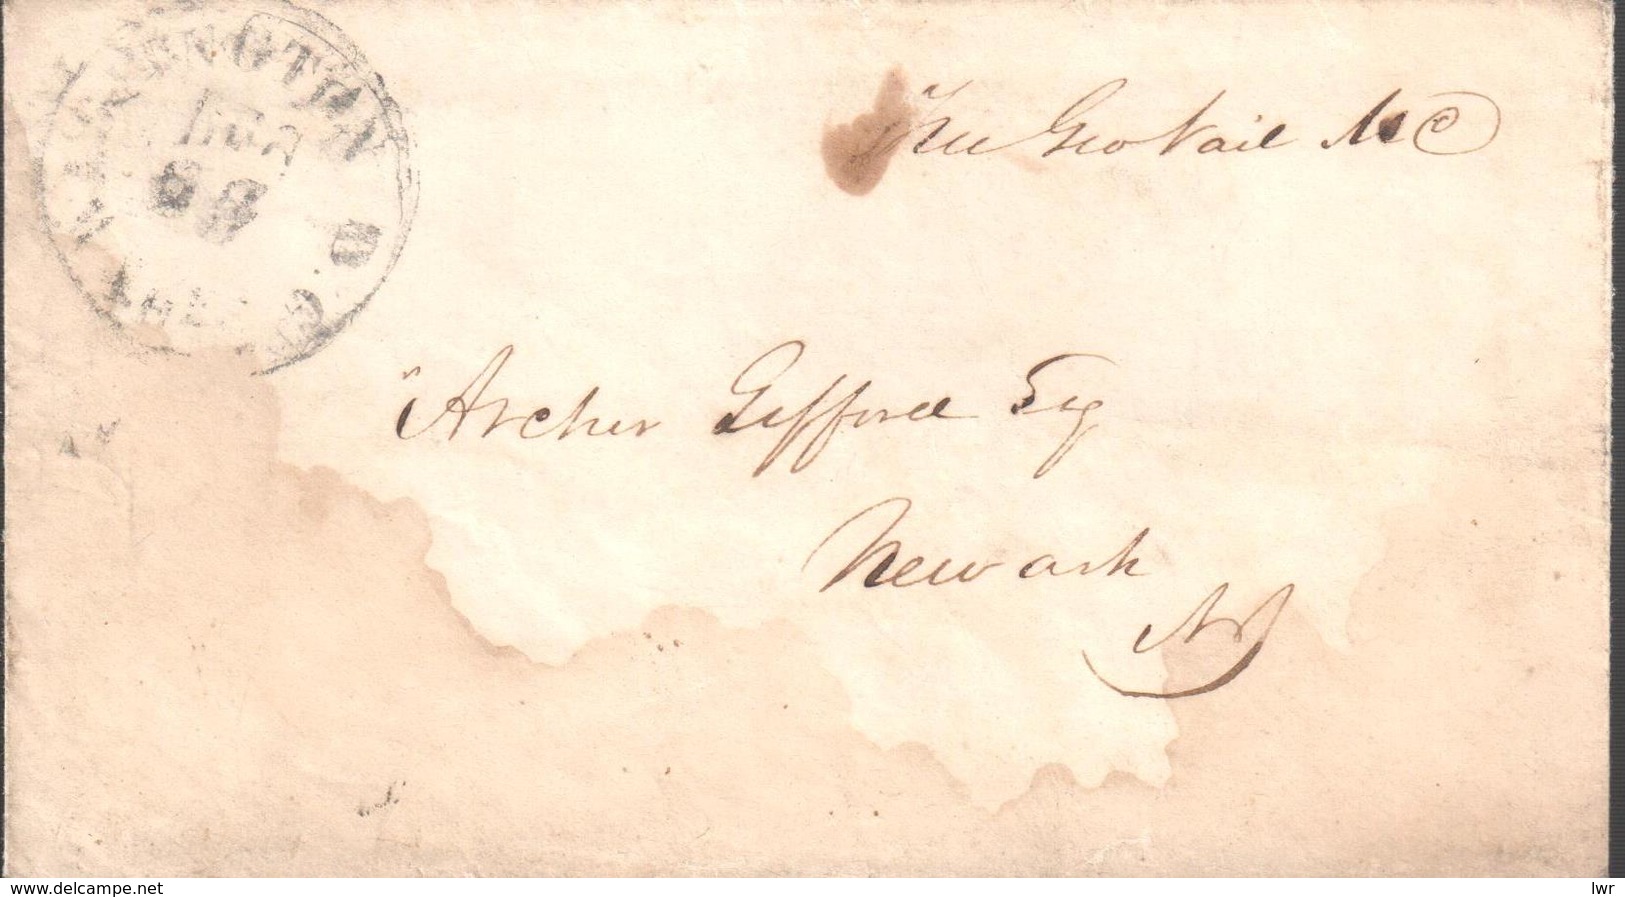 WASHINGTON D.C.
FREE
Free Geo Vail MC
Archer Gifford Esq
Newark
NJ
www.delcampe.net
lwr